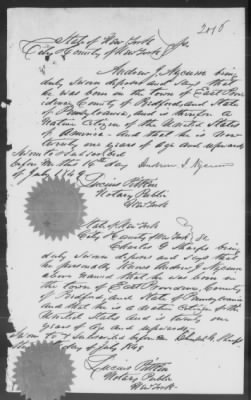 2076
State of New York
City & County of New York } ss.
Andrew J. being
duly sworn deposes and says that
he was born in the town of East Prov-
idence County of Bedford and State
of Pennsylvania, and is therefore a
Native Citizen of the United States
of America. And that he is now
twenty one years of Age and upwards
Sworn to & Subscribed
before me this 16th day Andrew J.
of July 1849
Lucius Pitkin
Notary Public
New York
State of New York
City & County New York } ss.
Charles G. being
duly sworn deposes and says that
he personally knows Andrew J.
above named that he was born in
the town of East Providence County
of Bedford and State of Pennsylvania
and that he is a Native Citizen of the
United States and is twenty one
years of Age and upwards.
Sworn to & Subscribed before me
this day of July 1849
Lucius Pitkin
Notary Public
New York